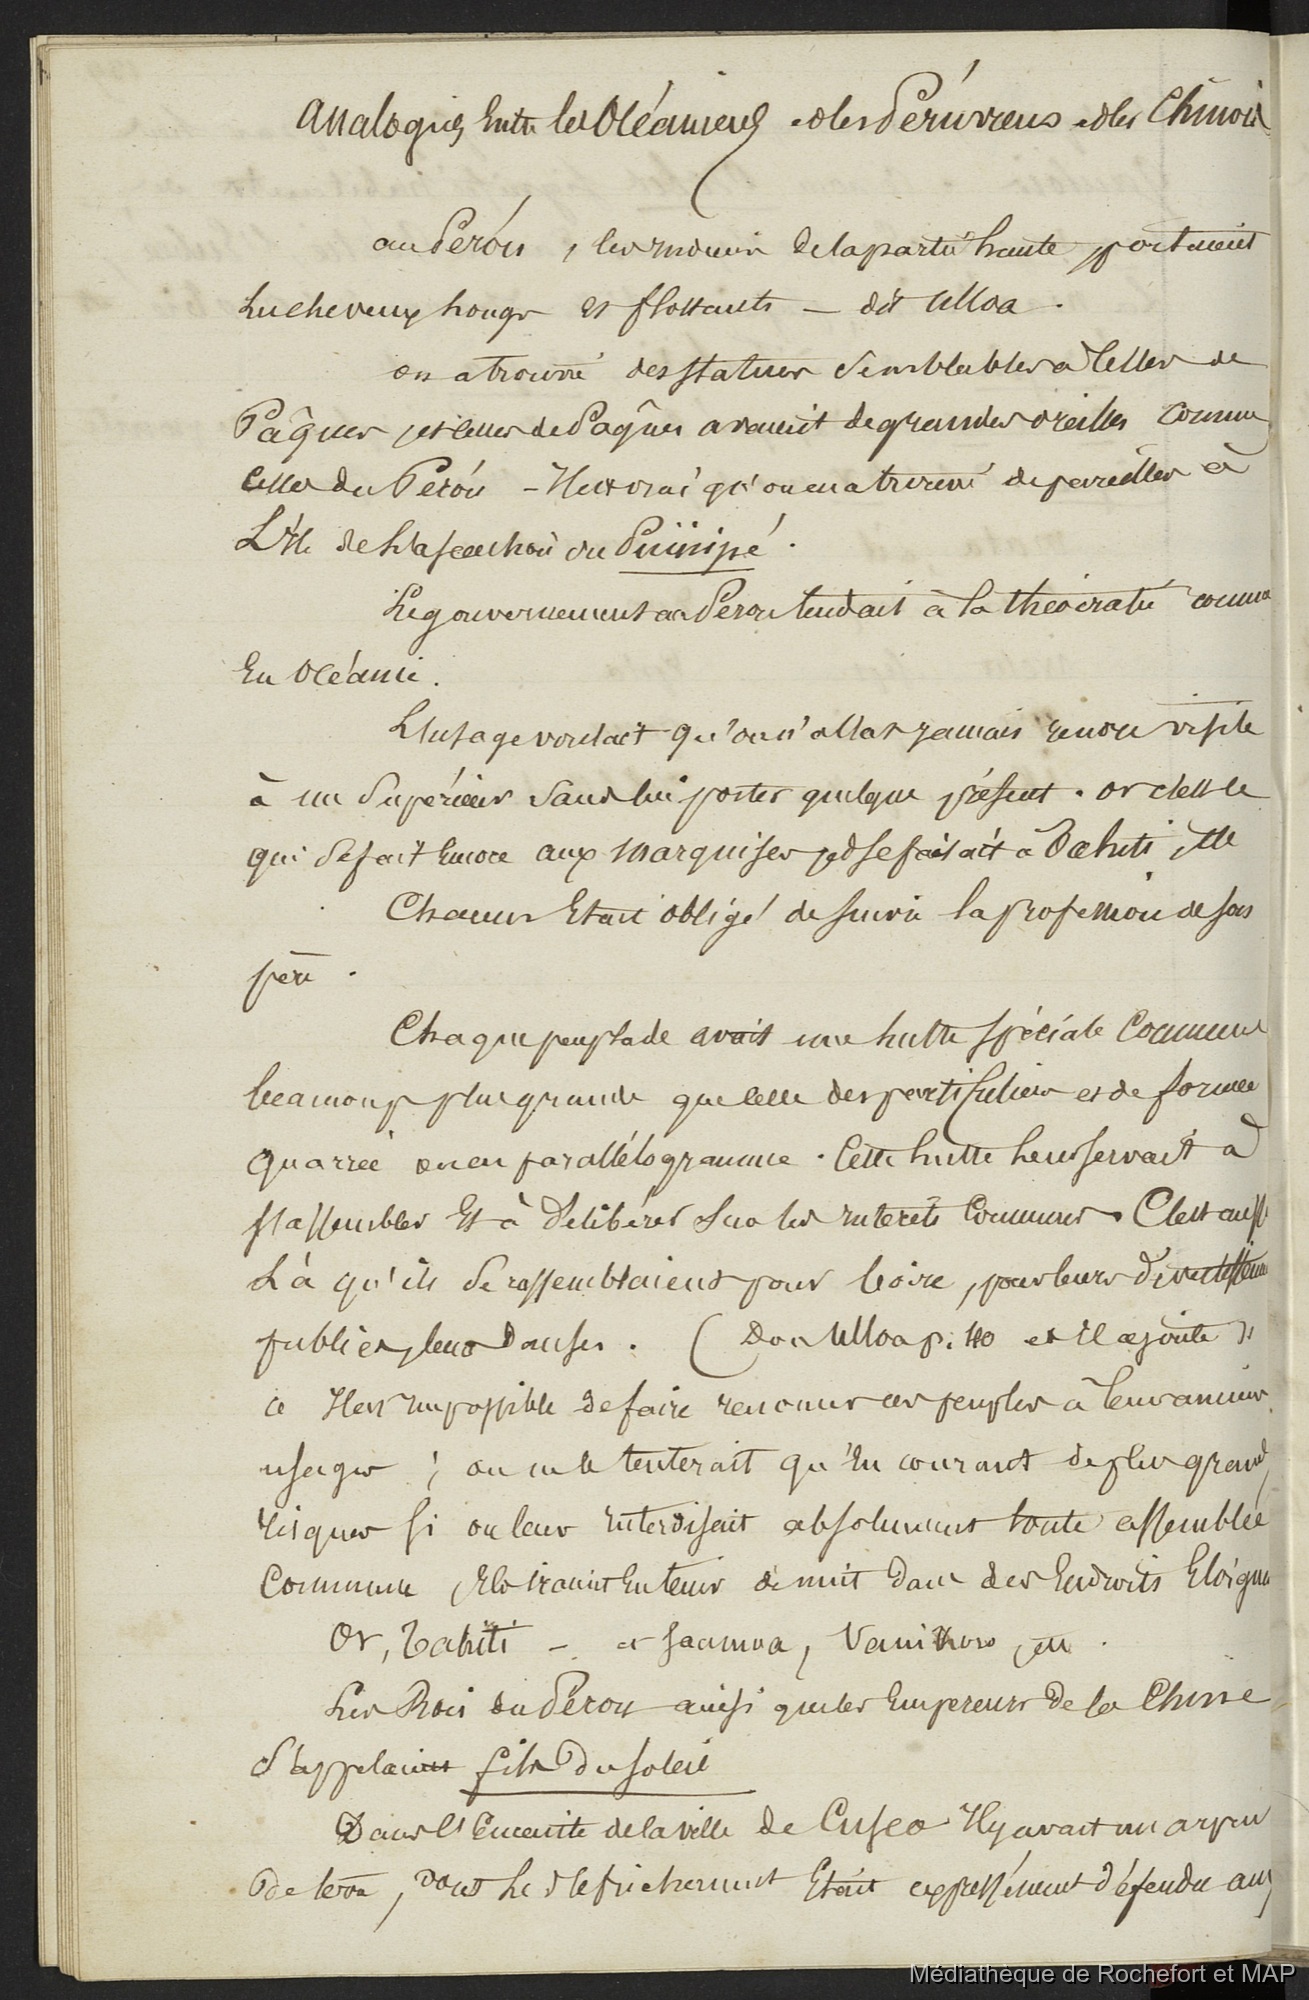 Analogies Entre les Océaniens et les Péruviens et les Chinois
au Pérou, les indiens de la partie haute portaient
les cheveux longs et flottants — dit Ulloa.
on a trouvé des statues semblables à celles de
Pâques, et celles de Pâques avaient de grandes oreilles comme
celles du Pérou - Il est vrai qu'on en a trouvé de pareilles à
L'île de ou Puinipé.
Le gouvernement au Pérou tendait à la théocratie comme
En Océanie.
L'usage voulait qu'on n'allat jamais rendre visite
à un Supérieur sans lui porter quelque présent. or c'est ce
qui se fait Encore aux Marquises et se faisait à Tahiti, etc
Chacun Etait obligé de suivre la profession de son
père.
Chaque peuplade avait une hutte spéciale Commune
beaucoup plus grande que celle des particuliers et de forme
quarrée ou en parallélogramme. Cette hutte leur servait à
s'assembler Et à Délibérer sur les interêts Communs. C'est aussi
Là qu'ils se rassemblaient pour boire, pour leurs divertissements
publics, leurs danses. (Don Ulloa p. 40 et il ajoute):
« Il est impossible de faire renoncer ces peuples à leurs anciens
usages; on ne le tenterait qu'En courant de plus grands
risques si on leur interdisait absolument toute assemblée
Commune, ils iraient En tenir de nuit dans des Endroits Eloignés
Or, Tahiti - et Saamoa, Vanikoro, etc.
Les Rois du Pérou ainsi que les Empereurs de la Chine
S'appelaient fils Du Soleil
Dans l'Enceinte de la ville de Cusco Il y avait un arpent
De terre, dont Le défrichement Etait expressément défendu aux
Médiathèque de Rochefort et MAP